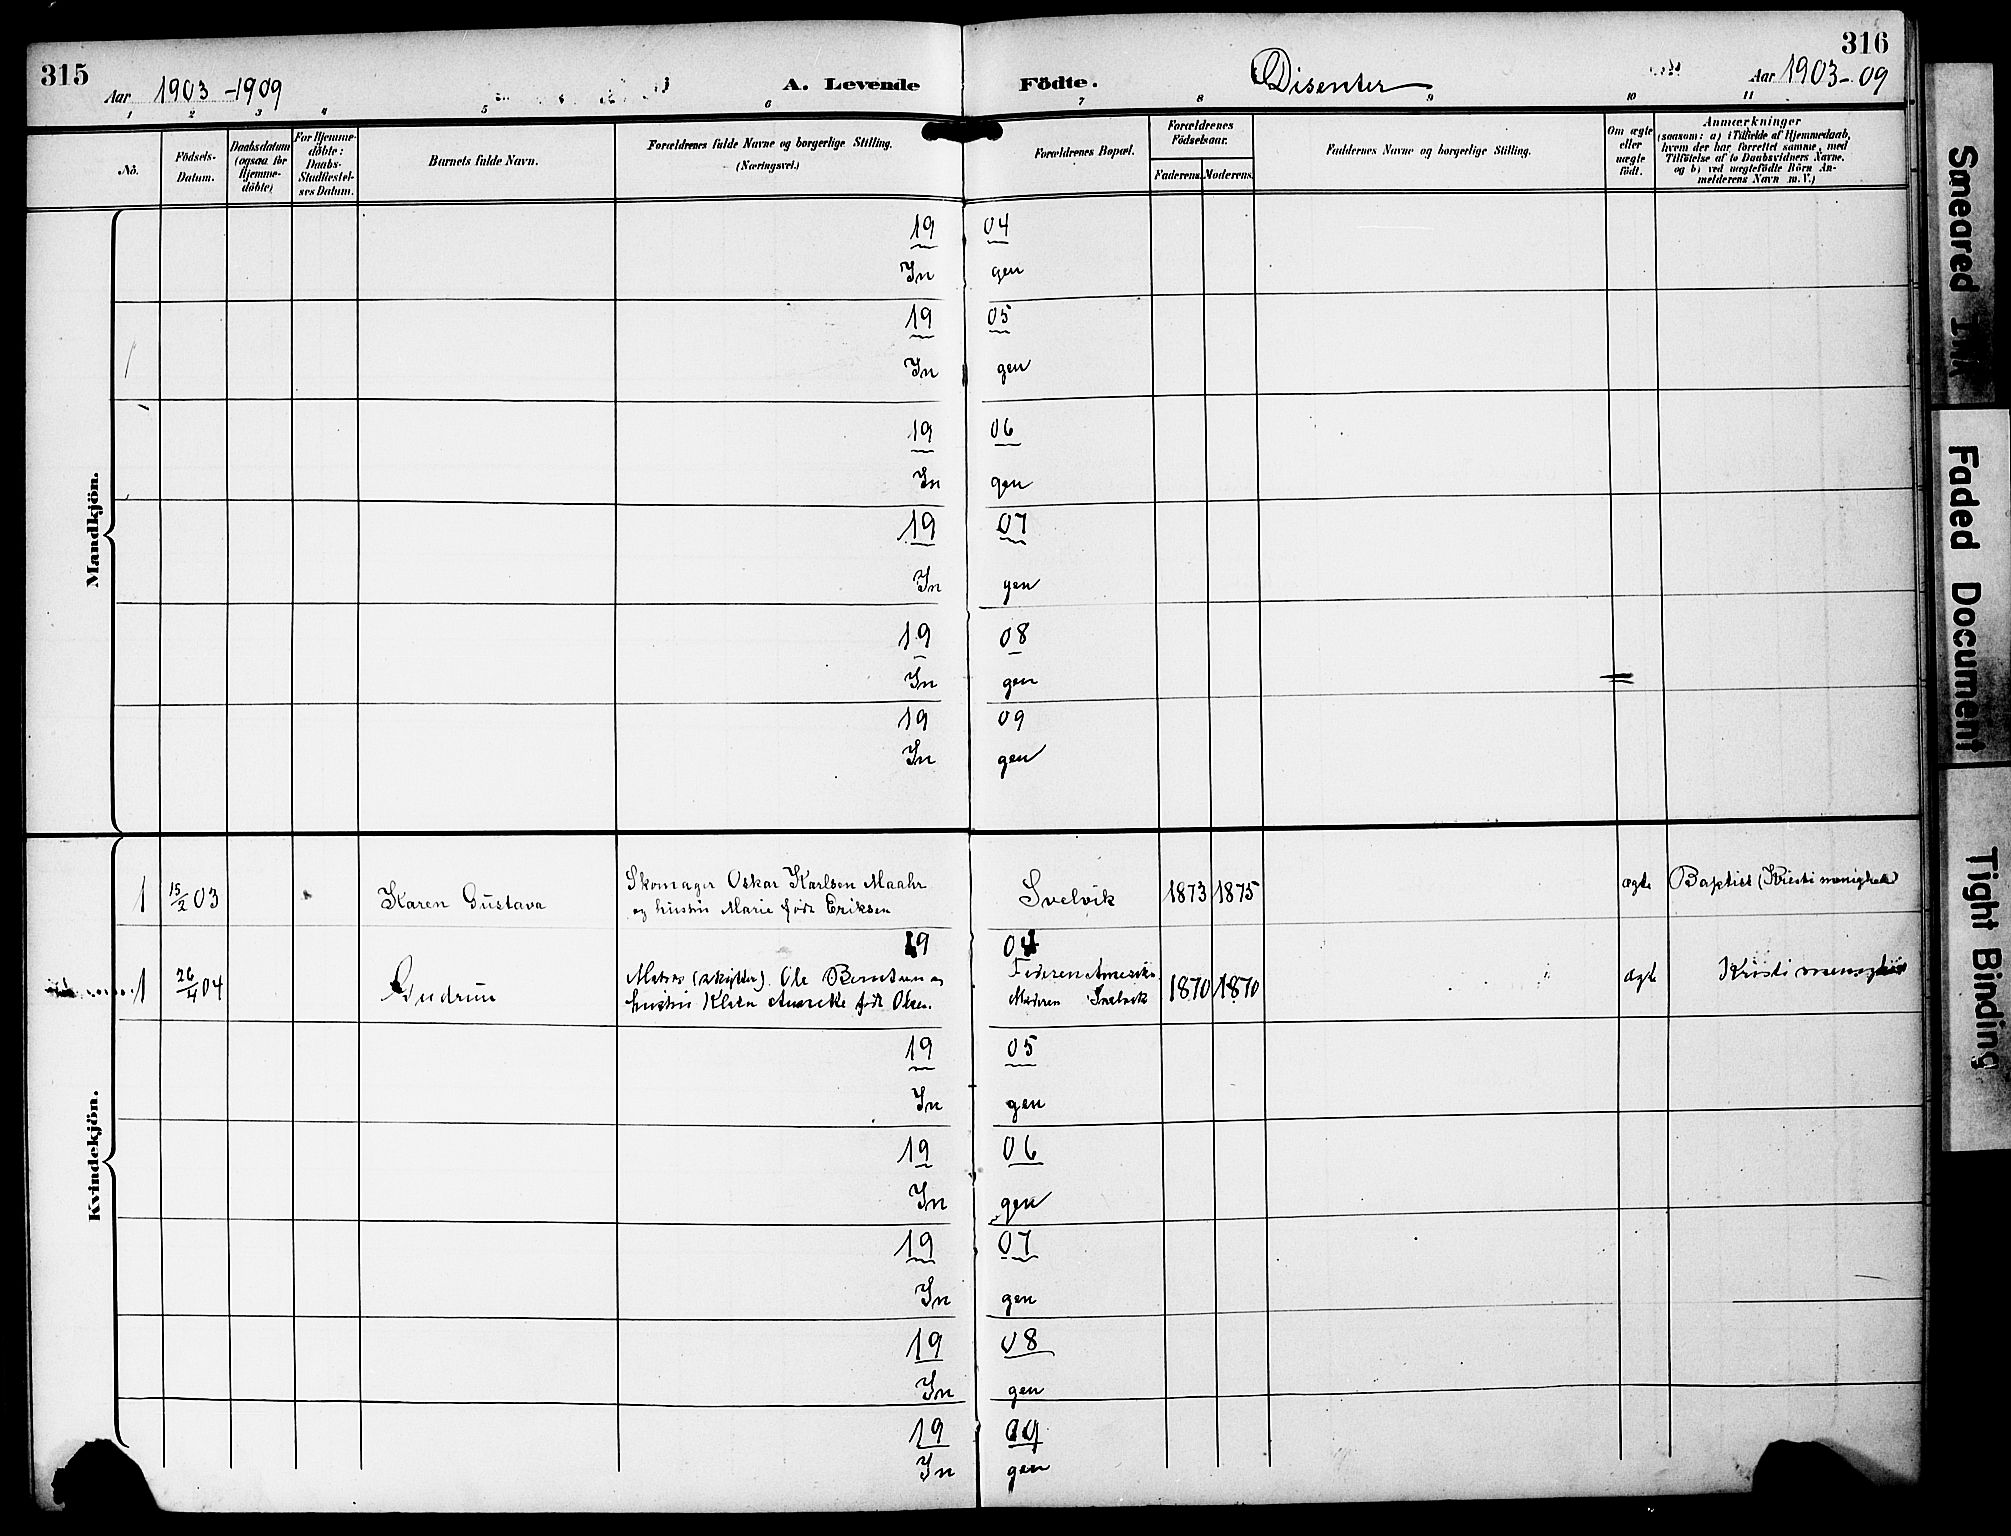 315
Aar 1903-1909
A. Levende Födte.
Disenter
Aar 1903-09
316
1 2 3 4 5 6 7 8 9 10 11
No.
Födsels-
Datum.
Daabsdatum
(ogsaa for
Hjemme-
döbte)
For Hjemme-
döbte:
Daabs-
Stadfæstel-
ses Datum.
Barnets fulde Navn.
Forældrenes fulde Navne og borgerlige Stilling.
(Næringsvei.)
Forældrenes Bopæl.
Forældrenes
Födselsaar.
Faderens. Moderens.
Faddernes Navne og borgerlige Stilling.
Om ægte
eller
uægte
födt.
Anmærkninger
(saasom: a) i Tilfælde af Hjemmedaab,
hvem der har forrettet samme, med
Tilföielse af to Daabsvidners Navne.
og b) ved uægtefödte Börn An-
melderens Navn m. V.)
Mandkjön.
19 04
In gen
19 05
In gen
19 06
In gen
19 07
In gen
19 08
In gen
19 09
In gen
Kvindekjön.
1 15/2 03 Karen Gustava
Skomager Oskar Karlsen Maahr
og hustru Marie født Eriksen
Svelvik 1873 1875 ægte Baptist (Kristi menighed)
19 04
1 26/4 04 Gudrun
Ole Berntsen og
hustru født Olsen.
Faderen Amerika
Moderen Svelvik
1870 1870 ægte Kristi menighed
19 05
In gen
19 06
In gen
19 07
In gen
19 08
In gen
19 09
In gen
Smeared Ink
Faded Document
Tight Binding